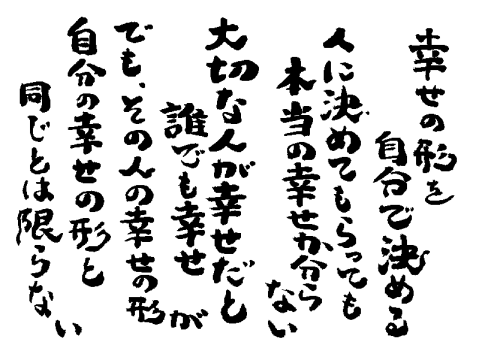 幸せの形を
自分で決める
人に決めてもらっても
本当の幸せか分らない
大切な人が幸せだと
誰でも幸せ
でも、その人の幸せの形が
自分の幸せの形と
同じとは限らない